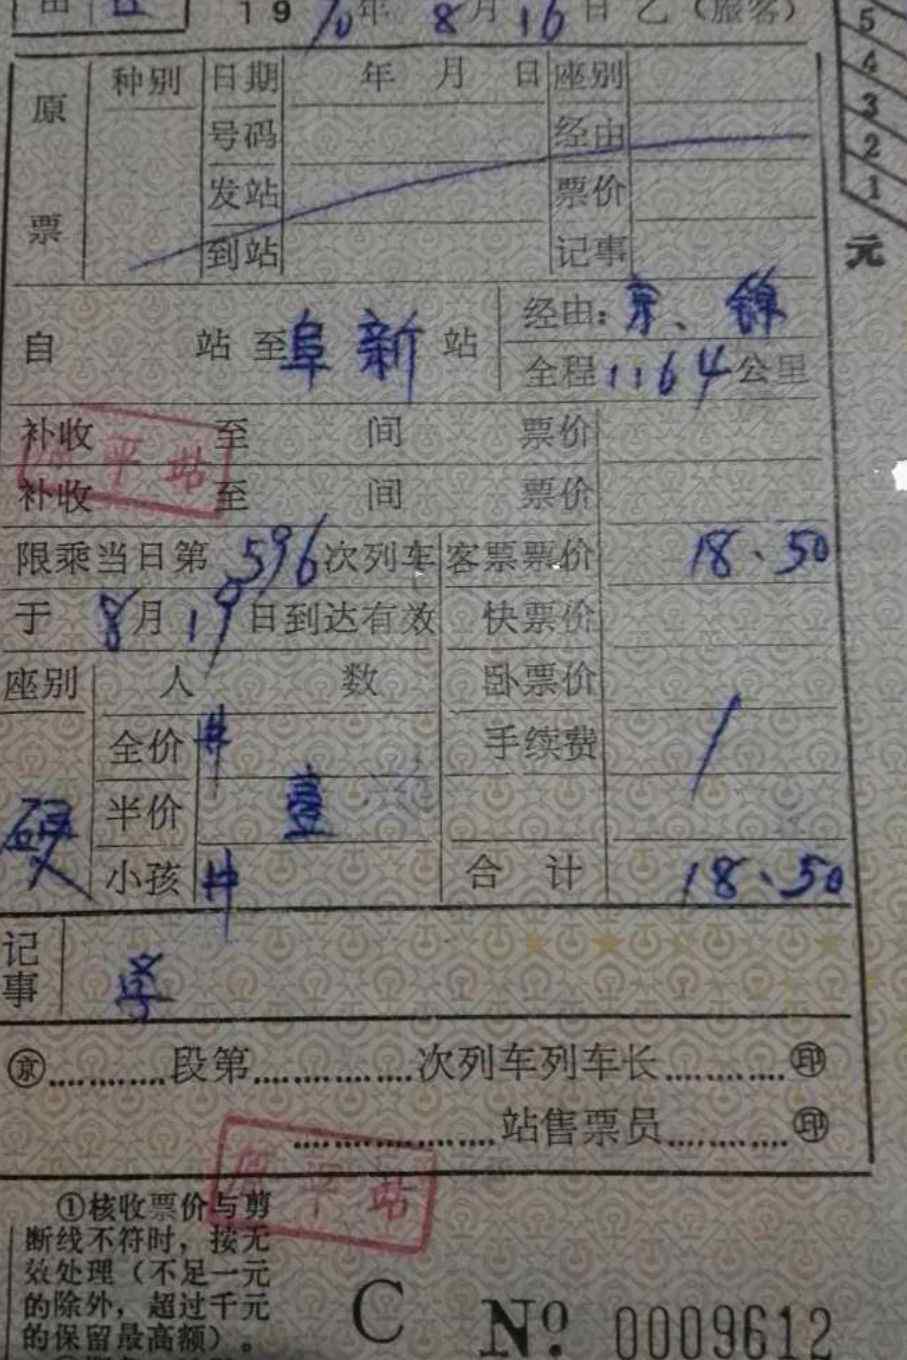 19 70年 8月16日 乙（旅客）
5
4
3
2
1
元
原票 种别 日期 年 月 日 座别
号码 经由
发站 票价
到站 记事
自 站至阜新站 经由：京、锦
全程1164公里
补收 至 间 票价
原平站
补收 至 间 票价
限乘当日第596次列车 客票票价 18.50
于8月19日到达有效 快票价
座别 人数 卧票价
全价 # 手续费 /
硬 半价 壹
小孩 # 合计 18.50
记事 学
㊞京……段第……次列车列车长……㊞
……站售票员……㊞
原平站
①核收票价与剪
断线不符时，按无
效处理（不足一元
的除外，超过千元
的保留最高额）。
C No 0009612